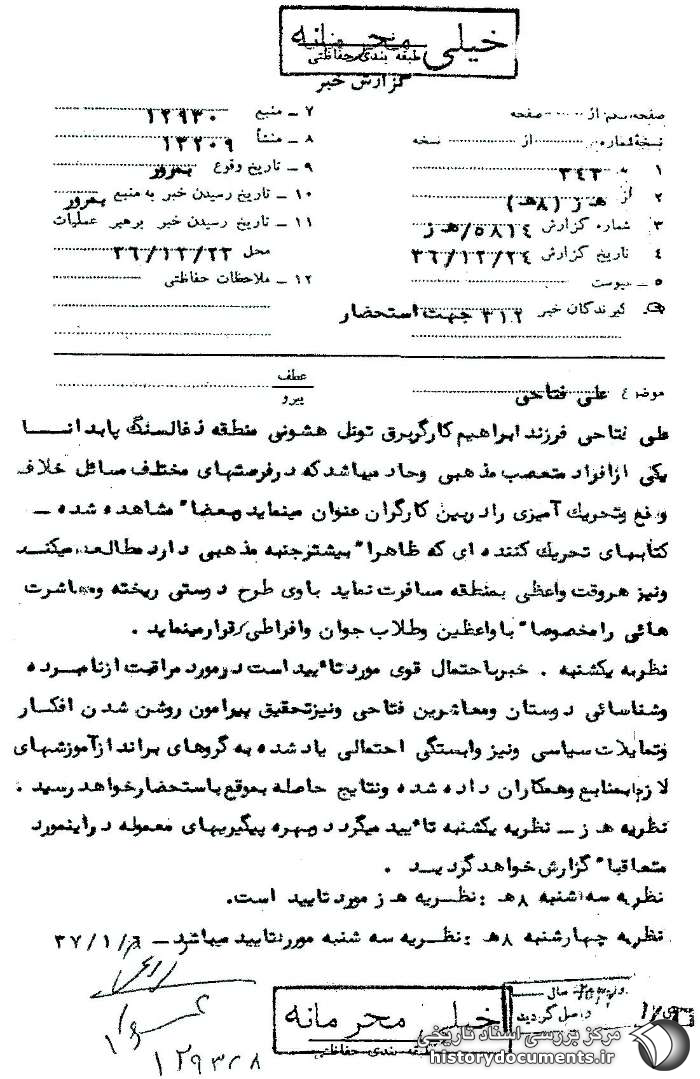 خیلی محرمانه
طبقه بندی حفاظتی
گزارش خبر
صفحه از صفحه
نسخهٔ شماره از نسخه
۱ به ۳۴۳
۲ از هـ ز (۸هـ)
۳ شماره گزارش ۵۸۱۴/هـ ز
۴ تاریخ گزارش ۳۶/۱۲/۲۴
۵ ـ پیوست
۶ گیرندگان خبر ۳۱۲ جهت استحضار
۷ ـ منبع ۱۲۹۳۰
۸ ـ منشأ ۱۳۲۰۹
۹ ـ تاریخ وقوع بمرور
۱۰ ـ تاریخ رسیدن خبر به منبع بمرور
۱۱ ـ تاریخ رسیدن خبر برهبر عملیات
محل ۳۶/۱۲/۲۳
۱۲ ـ ملاحظات حفاظتی
موضوع علی فتاحی
عطف
پیرو
علی فتاحی فرزند ابراهیم کارگر برق تونل هشونی منطقه ذغالسنگ پابدانا
یکی از افراد متعصب مذهبی وحاد میباشد که در فرصتهای مختلف مسائل خلاف
واقع وتحریك آمیزی را در بین کارگران عنوان مینماید وبعضا" مشاهده شده ـ
کتابهای تحریك کننده ای که ظاهرا" بیشتر جنبه مذهبی دارد مطالعه میکند
ونیز هر وقت واعظی بمنطقه مسافرت نماید با وی طرح دوستی ریخته ومعاشرت
هائی را مخصوصا" با واعظین وطلاب جوان وافراطی برقرار مینماید .
نظریه یکشنبه . خبر با حتمال قوی مورد تا°یید است در مورد مراقبت از نامبرده
وشناسائی دوستان ومعاشرین فتاحی ونیز تحقیق پیرامون روشن شدن افکار
وتمایلات سیاسی ونیز وابستگی احتمالی یاد شده به گروهای برانداز آموزشهای
لازم بمنابع وهمکاران داده شده ونتایج حاصله بموقع باستحضار خواهد رسید .
نظریه هـ ز ـ نظریه یکشنبه تا°یید میگردد وبهره پیگیریهای معموله در اینمورد
متعاقبا" گزارش خواهد گردید .
نظریه سه شنبه ۸هـ : نظریه هـ ز مورد تایید است.
نظریه چهارشنبه ۸هـ : نظریه سه شنبه مورد تایید میباشد ـ ۳۷/۱/۶
خیلی محرمانه
طبقه بندی حفاظتی
سال
واصل گردید
۱۲۹۳۰۸
مرکز بررسی اسناد تاریخی
historydocuments.ir